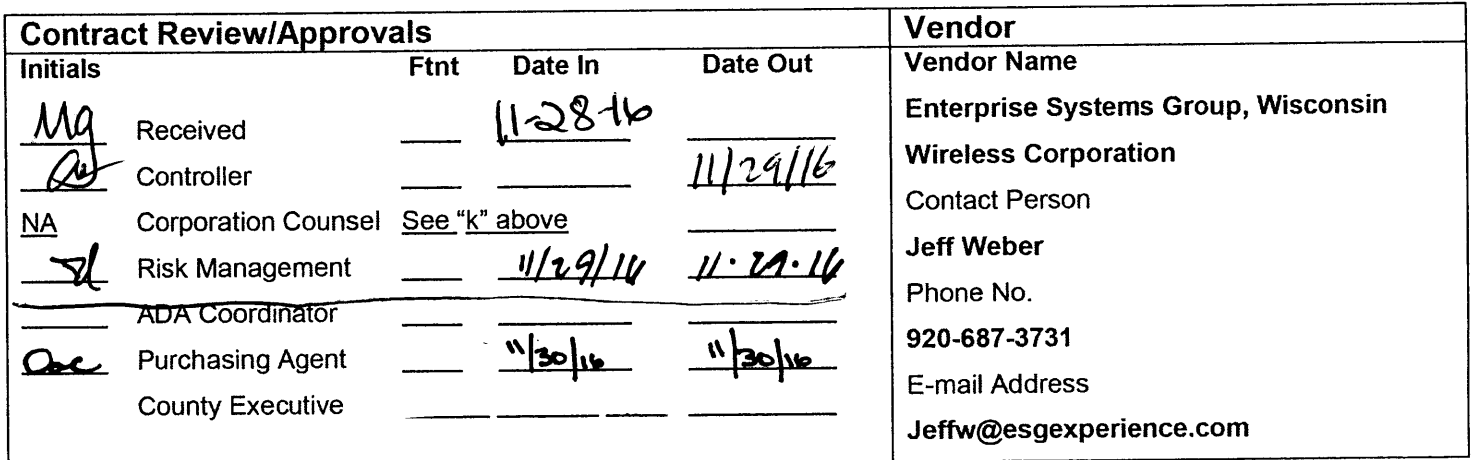 Contract Review/Approvals
Initials Ftnt Date In Date Out
Mg Received 11-28-16
Controller 11/29/16
NA Corporation Counsel See "k" above
Risk Management 11/29/16 11.29.16
ADA Coordinator
Purchasing Agent 11/30/16 11/30/16
County Executive
Vendor
Vendor Name
Enterprise Systems Group, Wisconsin
Wireless Corporation
Contact Person
Jeff Weber
Phone No.
920-687-3731
E-mail Address
Jeffw@esgexperience.com